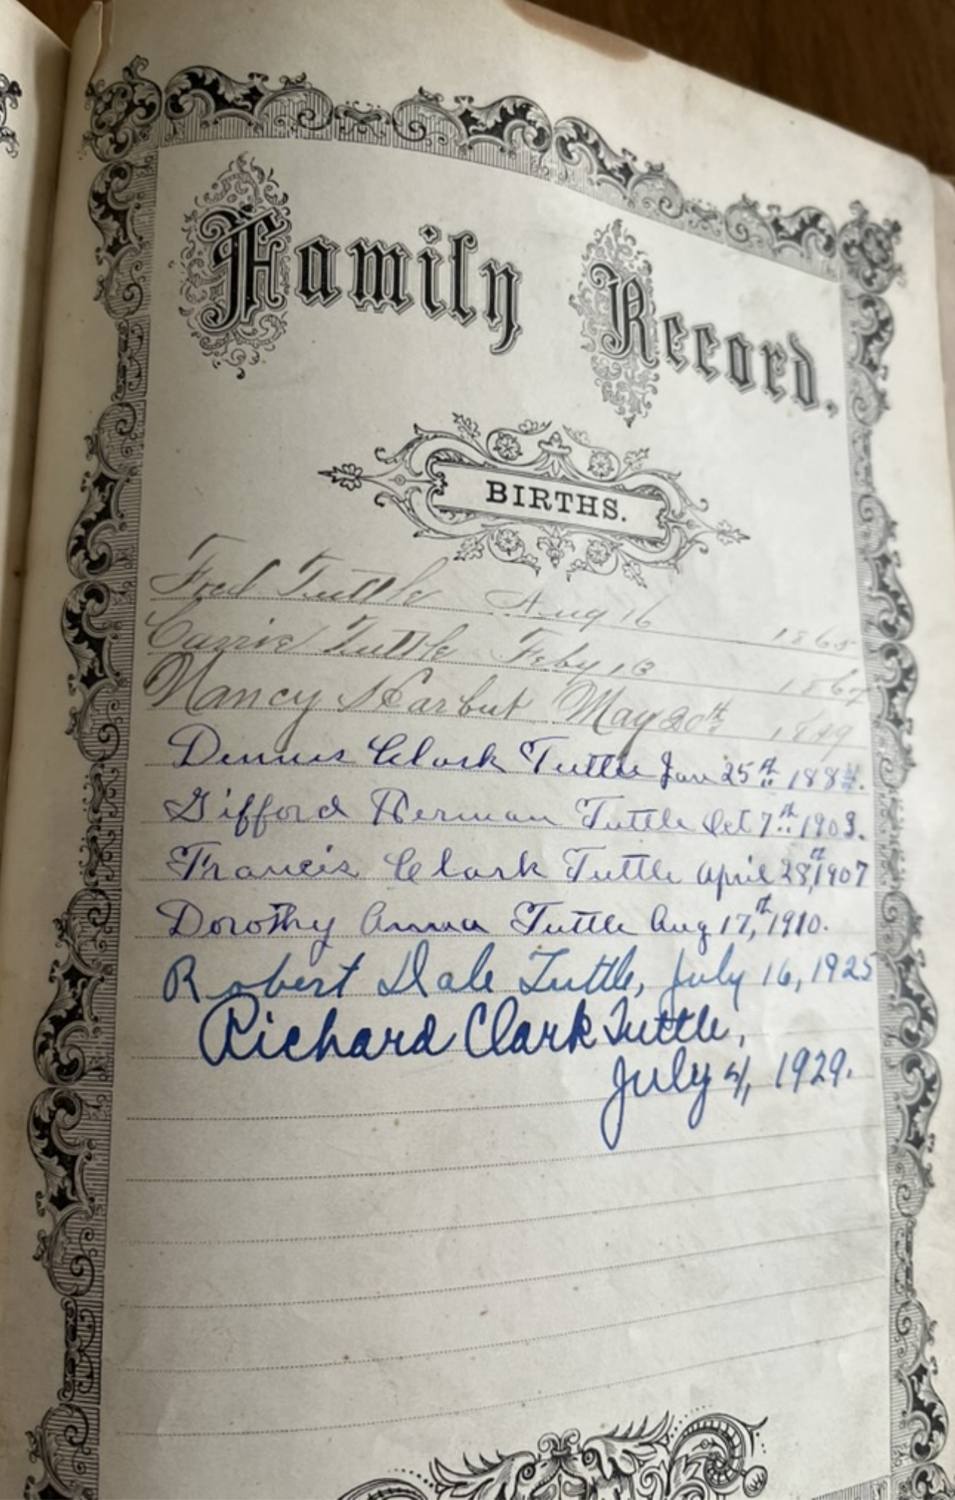 Family Record.
BIRTHS.
Fred Tuttle Aug 16 1865
Carrie Tuttle Feby 13
Nancy Harbut May 20th 1849
Dennis Clark Tuttle Jan 25th 1884.
Gifford Herman Tuttle Oct 7th 1903.
Francis Clark Tuttle April 28th, 1907
Dorothy Anna Tuttle Aug 17th, 1910.
Robert Dale Tuttle, July 16, 1925
Richard Clark Tuttle,
July 4, 1929.